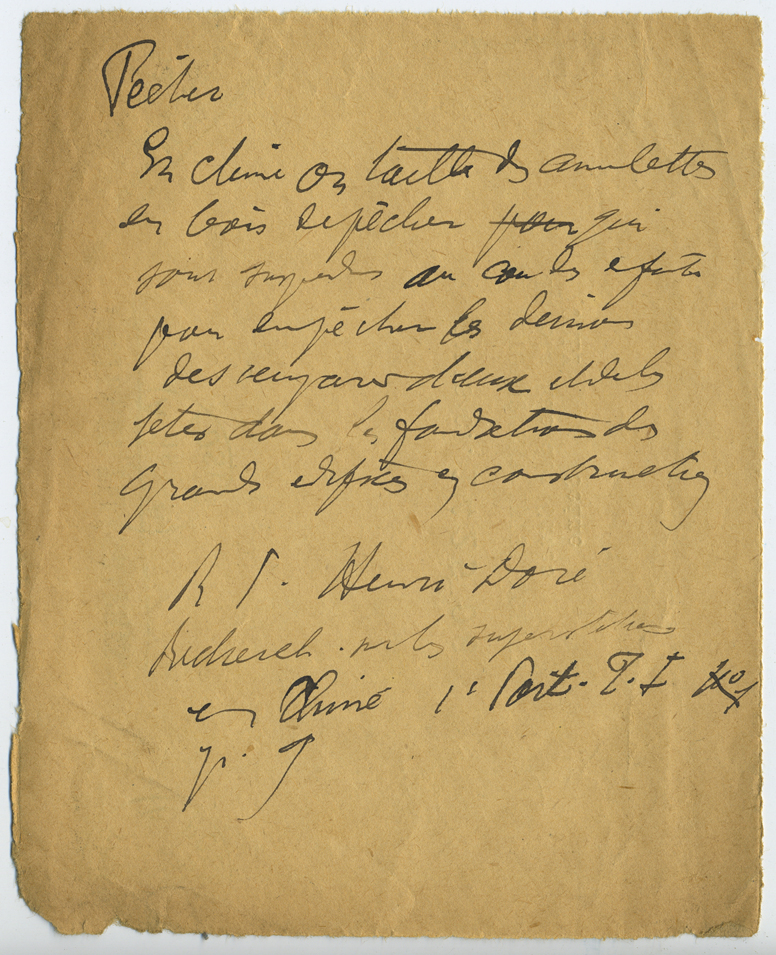 Pêcher
En Chine on taille des amulettes
en bois de pêcher pour qui
sont suspendues au cou des enfants
pour empêcher les démons
des emparer d'eux et de les
jeter dans les fondations des
grands édifices en construction
R P. Henri Doré
Recherch. sur les superstitions
en Chine 1e Part. T. I
p.